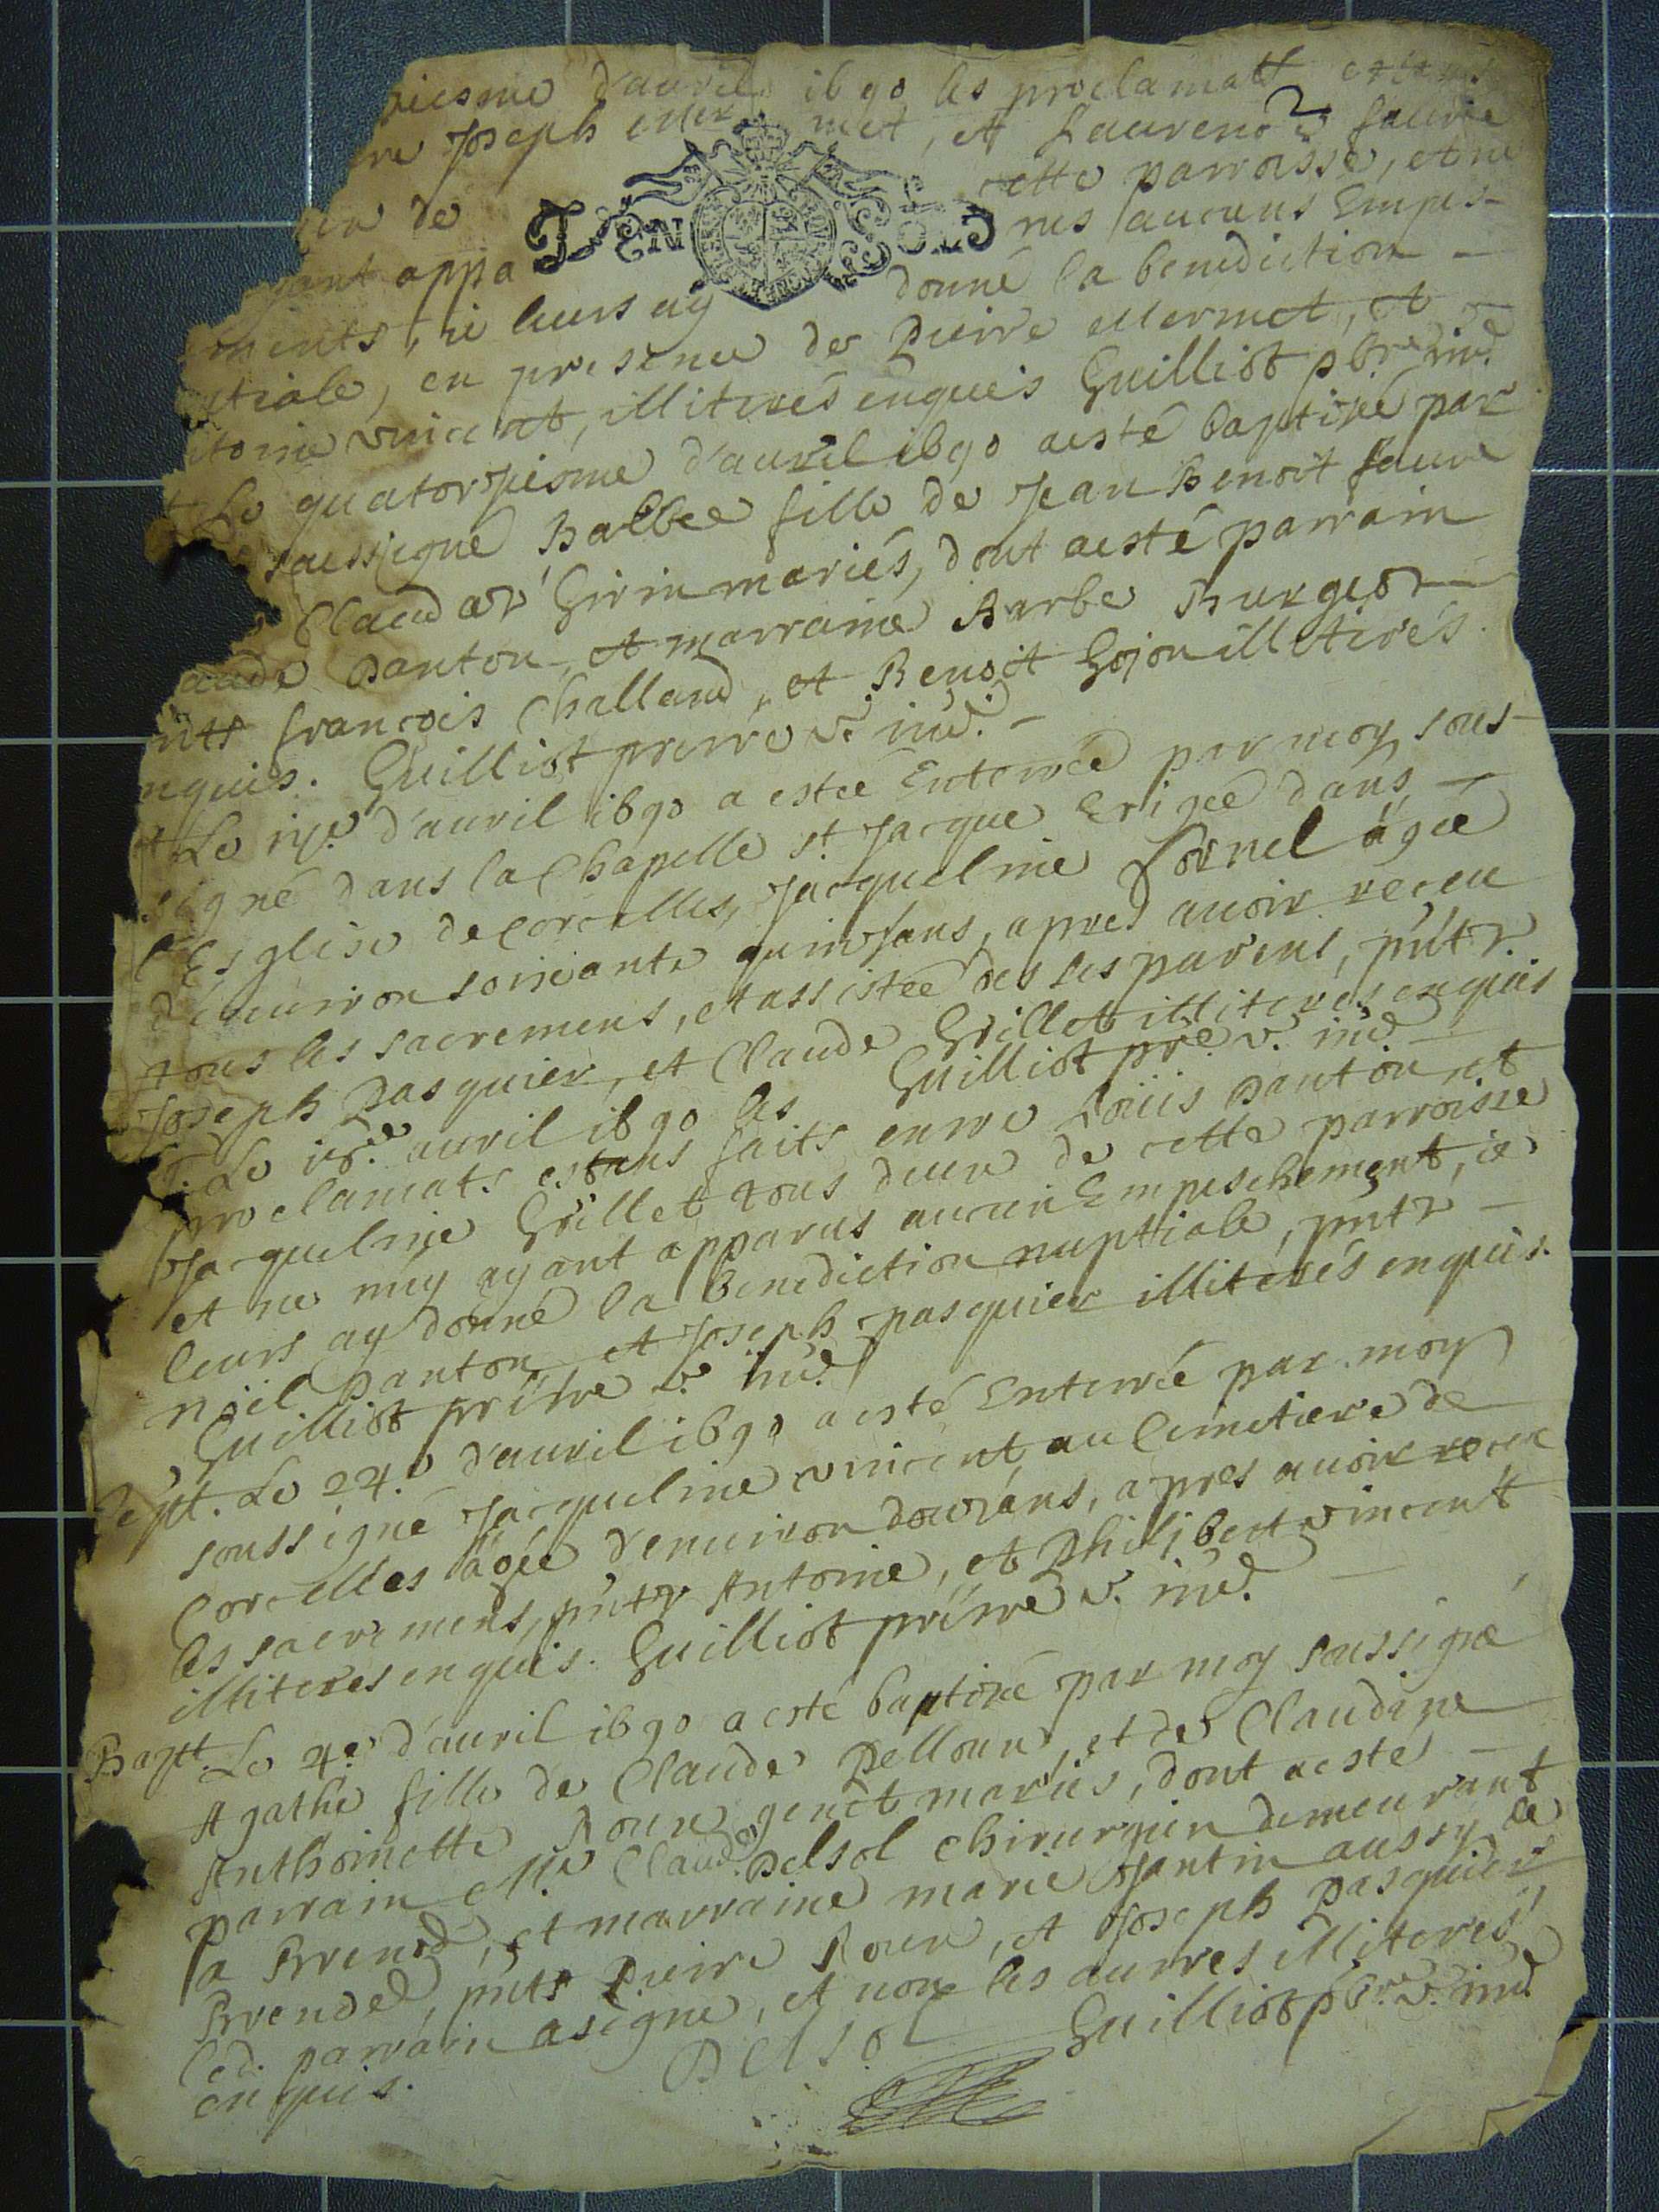 iesme d'auril 1690 les proclamatt estans
re Joseph Mermet, et Laurence faure
de cette parroisse, et ne
yant appa rus aucuns Empes-
ments, ie leurs ay donné la benediction
ptiale, en presence de Pierre Mermet, et
toine vincent, illiterés enquis Guilliot pbre vic.
Le quatorziesme d'auril 1690 a esté baptisée par
soussigné Balbe fille de Jean Benoit faure
Claudar Girin mariés, dont a esté parrain
aude Danton, et marraine Barbe Burgeot
nts françois Challand, et Benoit Gojon illiterés
nquis. Guilliot prebre v. ind.
Le d'auril 1690 a estée Enterrée par moy sous-
signé dans la Chapelle st. Jacque Erigée dans
l'Esglise de Corcelles, Jacqueline Cornel ägée
d'enuiron soixante quinsans, apres auoir receu
tous les sacremens, et assistée des ses parens, pntz
Joseph Pasquier, et Claude Grillet illiterés enquis
Guilliot pre v. ind.
Le 18e. auril 1690 les
proclamats estans faits entre Loüis Danton et
Jacqueline Grillet tous deux de cette parroisse
et ne m'ÿ ayant apparus aucun Empeschement, ie
leurs aÿ donné la benediction nuptiale, pntz
noël Danton et Joseph pasquier illiterés enquis.
Guilliot prebre v. ind.
Sept. Le 24.e d'auril 1690 a esté Enterrée par moy
soussigné Jacqueline vincent, au Cimetiere de
Corcelles ägée d'enuiron douzans, apres auoir receu
les sacremens, pntz Antoine, et Philibert vincent
illiteres enquis. Guilliot prebre v. ind.
Bapt. Le 4e. d'auril 1690 a esté baptisé par moy soussigné
Agathe fille de Claude Pelloux, et de Claudine
Anthoinette Roux genct mariés, dont a esté
parrain Me Claude Delsol chirurgien demeurant
a Brenod, et marraine marie Jantin aussy de
Brenod, pnts Pierre Roux, et Joseph Pasquier
led. parrain a signé, et non les autres illiterés
enquis. Guilliot pbre. v. ind.
Delsol